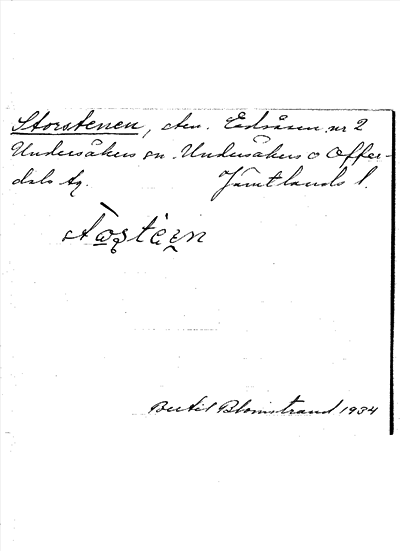 Storstenen, sten. Edsåsen nr 2
Undersåkers sn. Undersåkers o Offer-
dals tg. Jämtlands l.
Bertil Blomstrand 1934